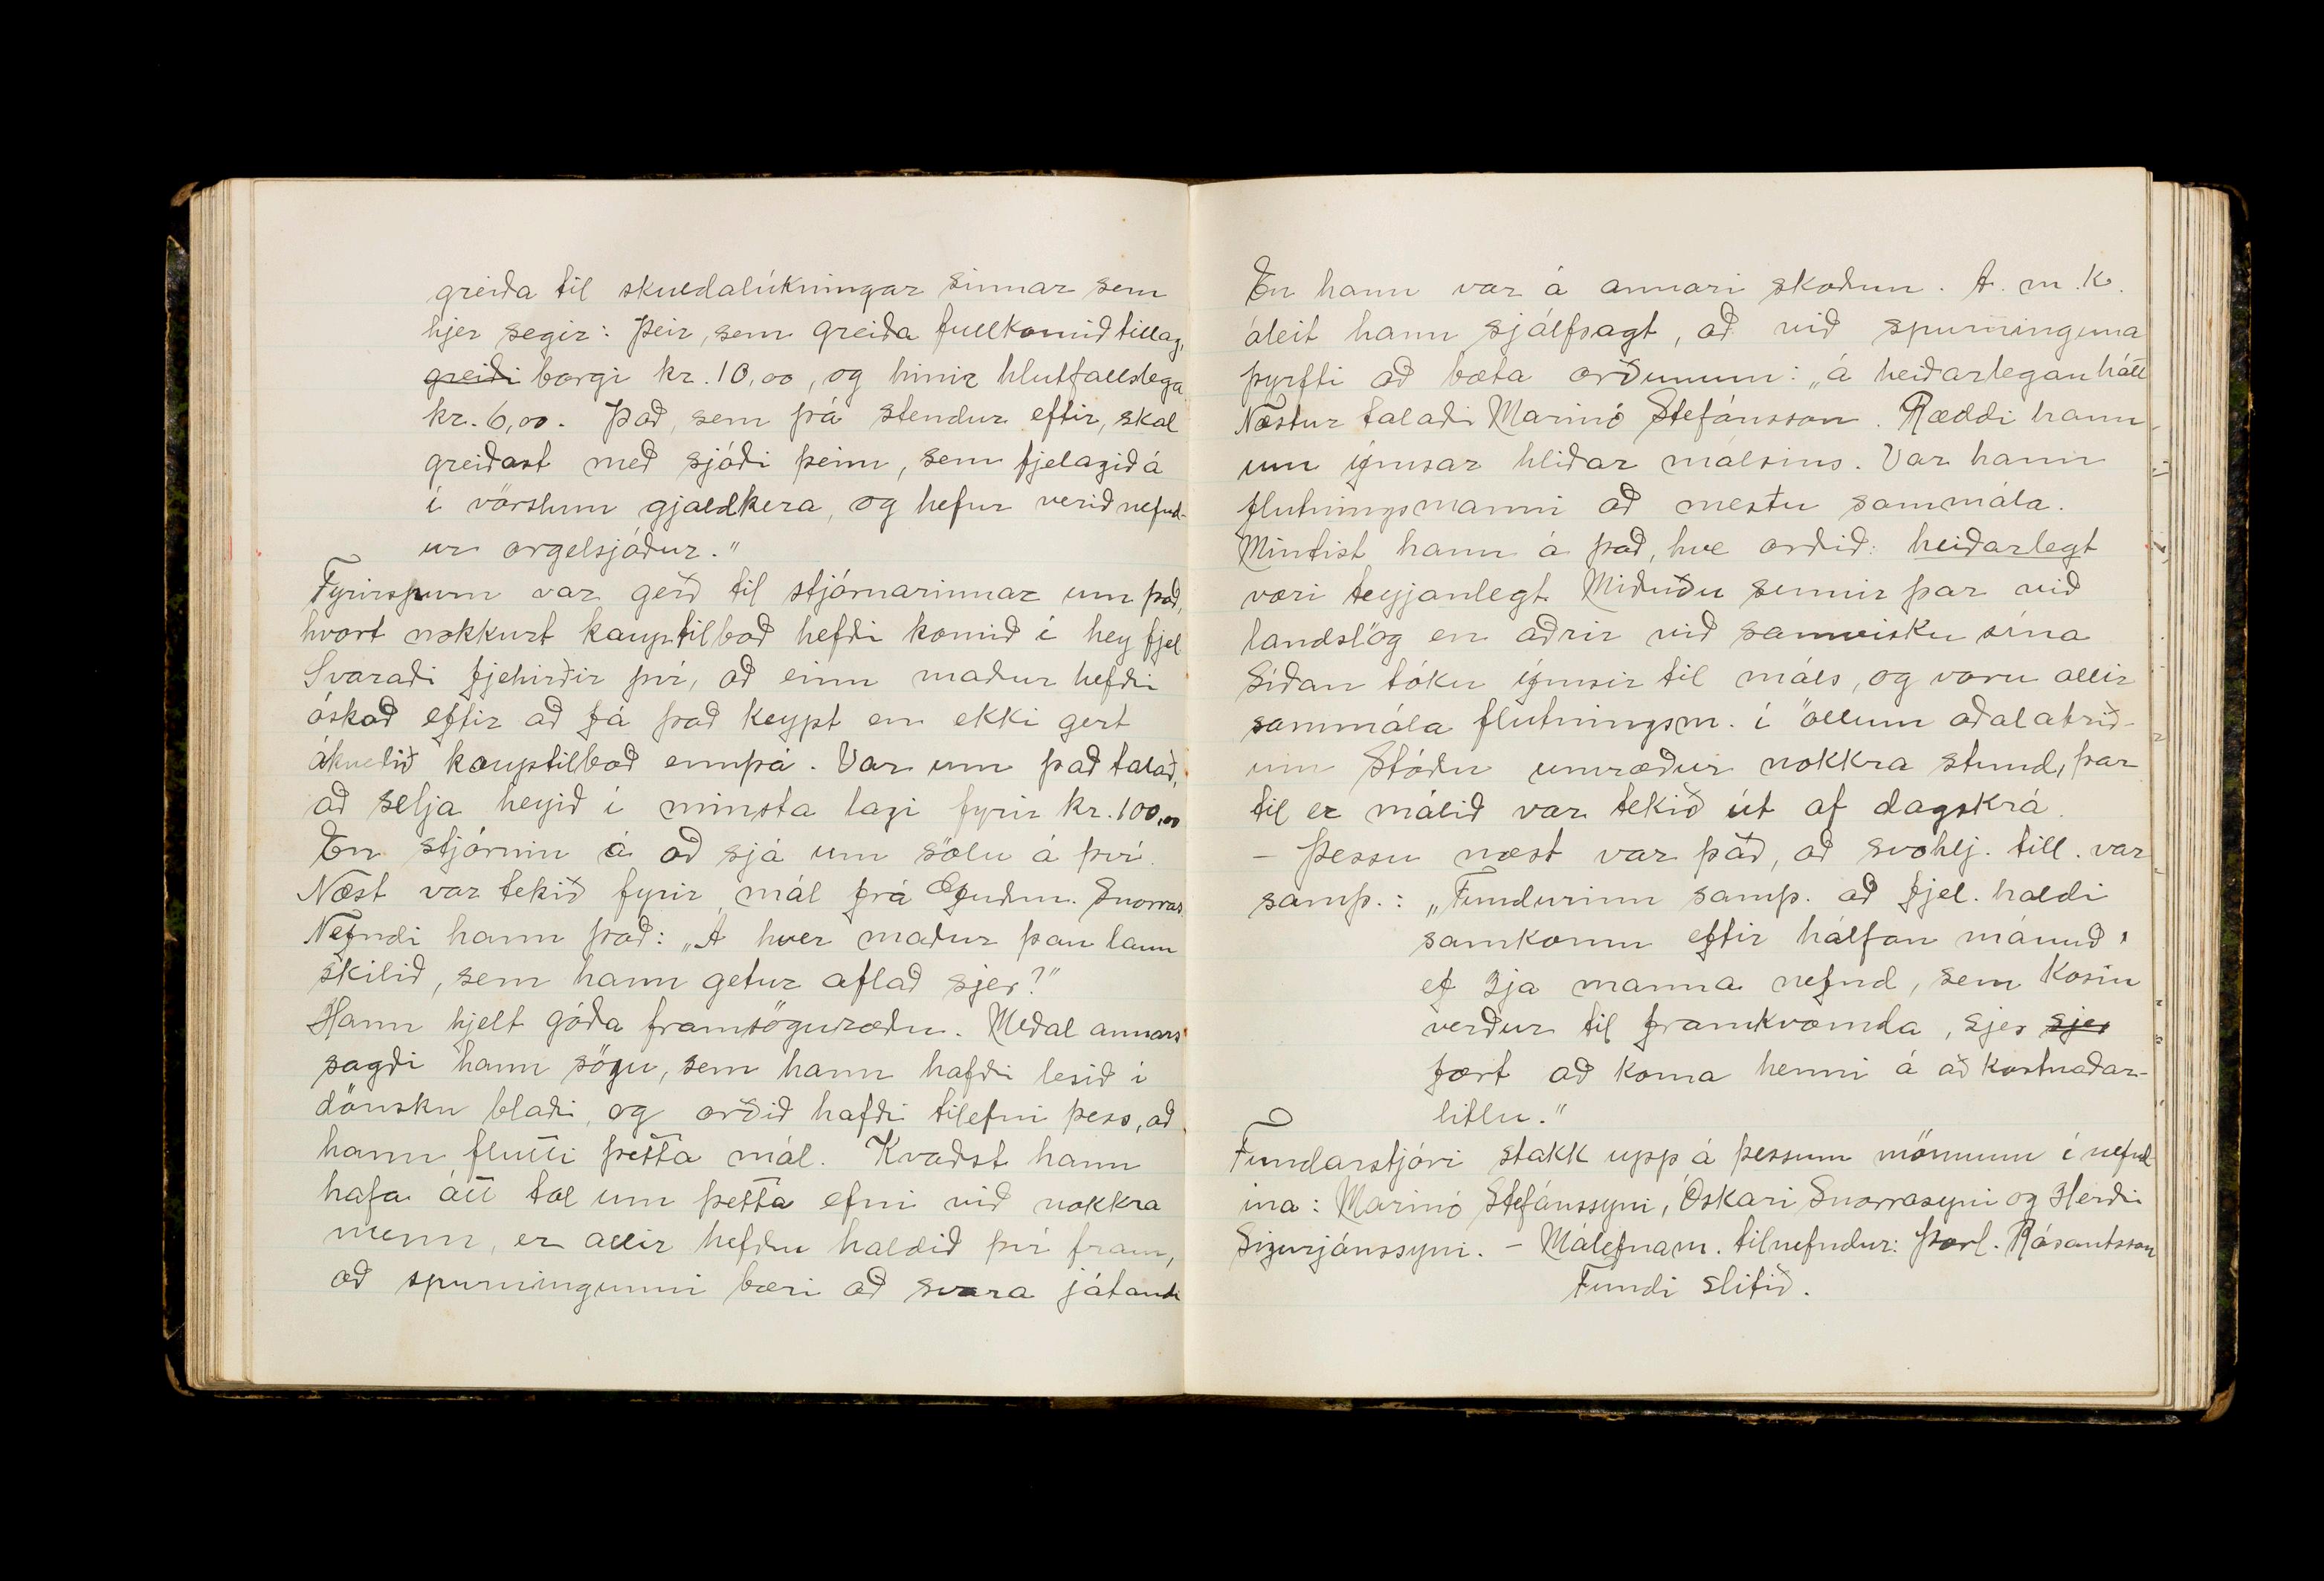 greiða til skuldalúkningar sinnar sem
hjer segir: Þeir, sem greiða fullkomið tillag,
greiði borgi kr. 10,00, og hinir hlutfallslega
kr. 6,00. Það, sem þá stendur eftir, skal
greiðast með sjóði þeim, sem fjelagið á
í vörslum gjaldkera, og hefur verið nefnd-
ur orgelsjóður."
Fyrirspurn var gerð til stjórnarinnar um það,
hvort nokkurt kauptilboð hefði komið í hey fjel
Svaraði fjehirðir því, að einn maður hefði
óskað eftir að fá það keypt en ekki gert
ákveðið kauptilboð ennþá. Var um það talað,
að selja heyið í minsta lagi fyrir kr. 100,00
En stjórnin á að sjá um sölu á því.
Næst var tekið fyrir mál frá Guðm. Snorras
Nefndi hann það: „Á hver maður þau laun
skilið, sem hann getur aflað sjer?"
Hann hjelt góða framsöguræðu. Meðal annars
sagði hann sögu, sem hann hafði lesið í
dönsku blaði, og orðið hafði tilefni þess, að
hann flutti þetta mál. Kvaðst hann
hafa átt tal um þetta efni við nokkra
menn, er allir hefðu haldið því fram,
að spurningunni bæri að svara játandi
En hann var á annari skoðun. A. m. k.
áleit hann sjálfsagt, að við spurninguna
þyrfti að bæta orðunum: „á heiðarlegan hátt
Næstur talaði Marinó Stefánsson. Ræddi hann
um ýmsar hliðar málsins. Var hann
flutningsmanni að mestu sammála.
Mintist hann á það, hve orðið: heiðarlegt
væri teygjanlegt. Miðuðu sumir þar við
landslög en aðrir við samvisku sína
Síðan tóku ýmsir til máls, og voru allir
sammála flutningsm. í öllum aðalatrið-
um Stóðu umræður nokkra stund, þar
til er málið var tekið út af dagskrá.
– Þessu næst var það, að svohlj. till. var
samþ.: „Fundurinn samþ. að fjel. haldi
samkomu eftir hálfan mánuð,
ef 3ja manna nefnd, sem kosin
verður til framkvæmda, sjer sjer
fært að koma henni á að kostnaðar-
litlu."
Fundarstjóri stakk upp á þessum mönnum í nefnd
ina: Marinó Stefánssyni, Óskari Snorrasyni og Herði
Sigurjánssyni. – Málefnam. tilnefndur: Þorl. Rósantsson
Fundi slitið.